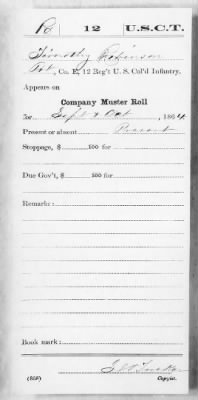 R 12 U.S.C.T.
Timothy Robinson
Pvt, Co. E, 12 Reg't U. S. Col'd Infantry.
Appears on
Company Muster Roll
for Sept & Oct, 1864
Present or absent Present
Stoppage, $ 100 for
Due Gov't, $ 100 for
Remarks:
Book mark:
(858) Copyist.